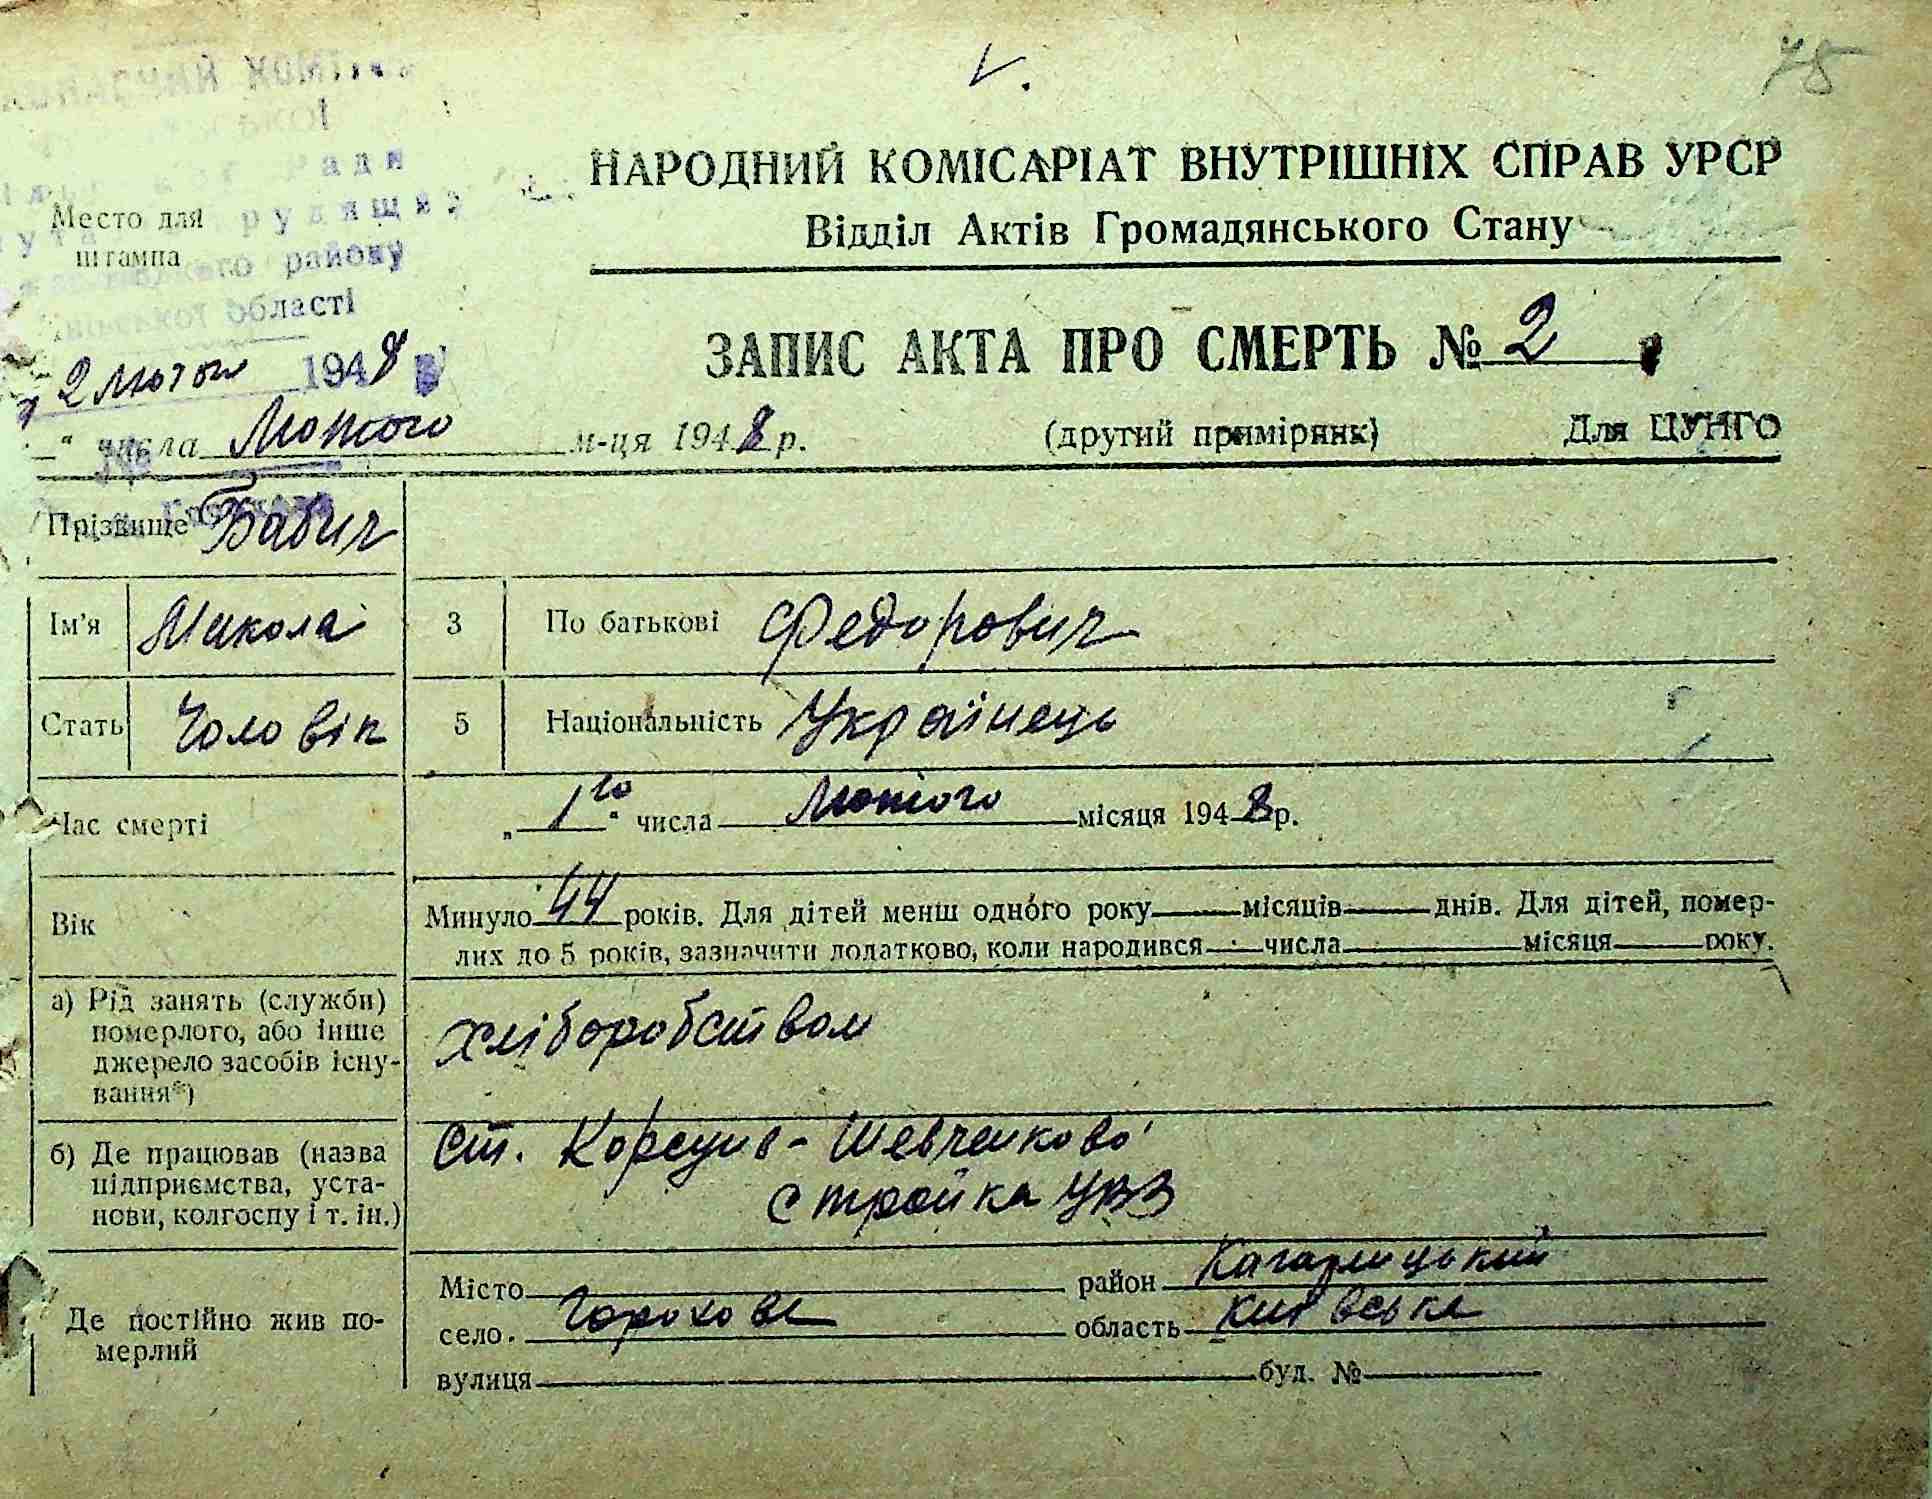 V.
78
НАРОДНИЙ КОМІСАРІАТ ВНУТРІШНІХ СПРАВ УРСР
Відділ Актів Громадянського Стану
Место для
штампа
району
області
2 лютого 1948
ЗАПИС АКТА ПРО СМЕРТЬ № 2
числа Лютого м-ця 1948 р.
(другий примірник) Для ЦУНГО
Прізвище Бабич
Ім'я Микола 3 По батькові Федорович
Стать Чоловік 5 Національність Українець
Час смерті „1го" числа Лютого місяця 1948 р.
Вік
Минуло 44 років. Для дітей менш одного року місяців днів. Для дітей, помер-
лих до 5 років, зазначити додатково, коли народився числа місяця року.
а) Рід занять (служби)
померлого, або інше
джерело засобів існу-
вання*)
хліборобством
б) Де працював (назва
підприємства, уста-
нови, колгоспу і т. ін.)
ст. Корсунь-Шевченково
стройка УВЗ
Де постійно жив по-
мерлий
Місто район Кагарлицький
село. Горохове область Київська
вулиця буд. №